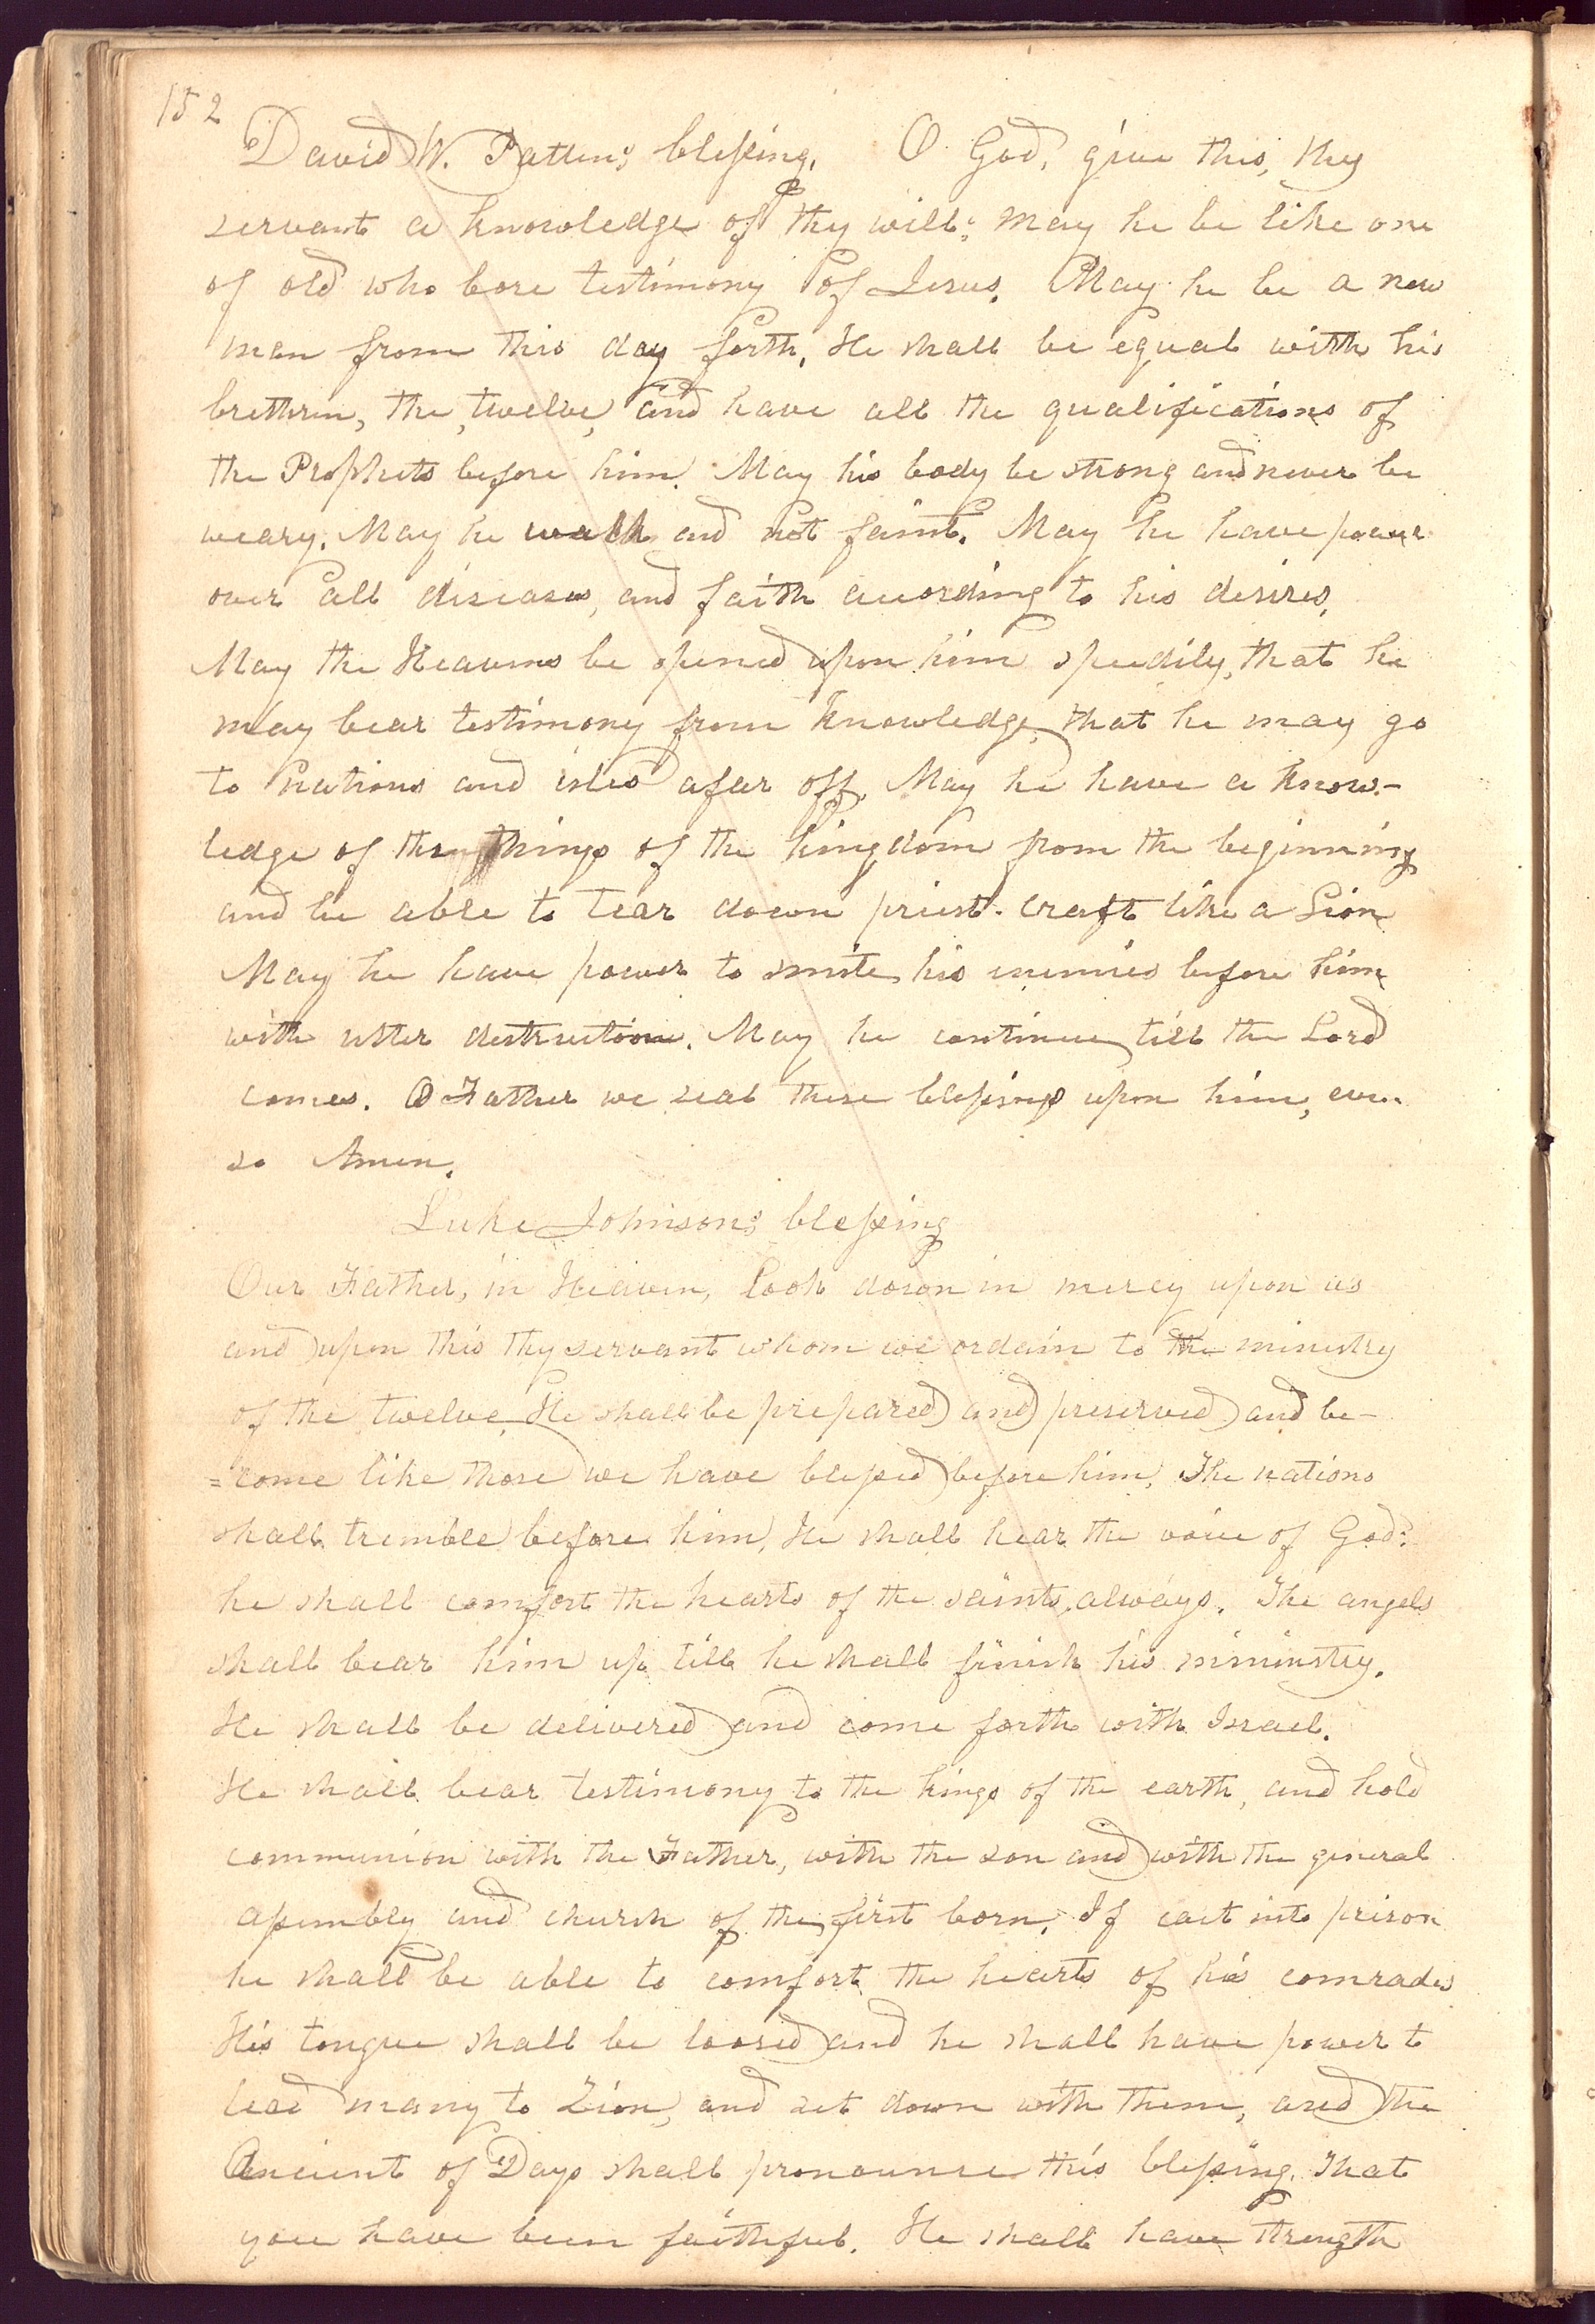 152
David W. Patten's blessing. O God, give this, thy
servant a knowledge of thy will; may he be like one
of old who bore testimony of Jesus. May he be a new
man from this day forth. He shall be equal with his
brethren, the twelve, and have all the qualifications of
the Prophets before him. May his body be strong and never be
weary. May he walk and not faint. May he have power
over all diseases, and faith according to his desires.
May the Heavens be opened upon him speedily, that he
may bear testimony from knowledge, that he may go
to nations and isles afar off. May he have a know-
ledge of the things of the kingdom from the beginning
and be able to tear down priest-craft like a Lion
May he have power to smite his enemies before him
with utter destruction. May he continue till the Lord
comes. O Father we seal these blessings upon him, even
so Amen.
Luke Johnson's blessing
Our Father, in Heaven, look down in mercy upon us
and upon this thy servant whom we ordain to the ministry
of the twelve. He shall be prepared and preserved and be-
=come like those we have blessed before him. The nations
shall tremble before him. He shall hear the voice of God:
he shall comfort the hearts of the saints always. The angels
shall bear him up till he shall finish his miministry.
He shall be delivered and come forth with Israel.
He shall bear testimony to the kings of the earth, and hold
communion with the Father, with the son and with the general
assembly and church of the first born. If cast into prison
he shall be able to comfort the hearts of his comrades
His tongue shall be loosed and he shall have power to
lead many to Zion, and set down with them, and the
Ancient of Days shall pronounce this blessing. That
you have been faithful. He shall have strength